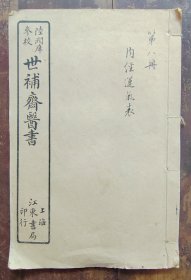 第八冊
內经運氣表
陸潤庠
參校
世補齋醫書
上海
江東書局
印行